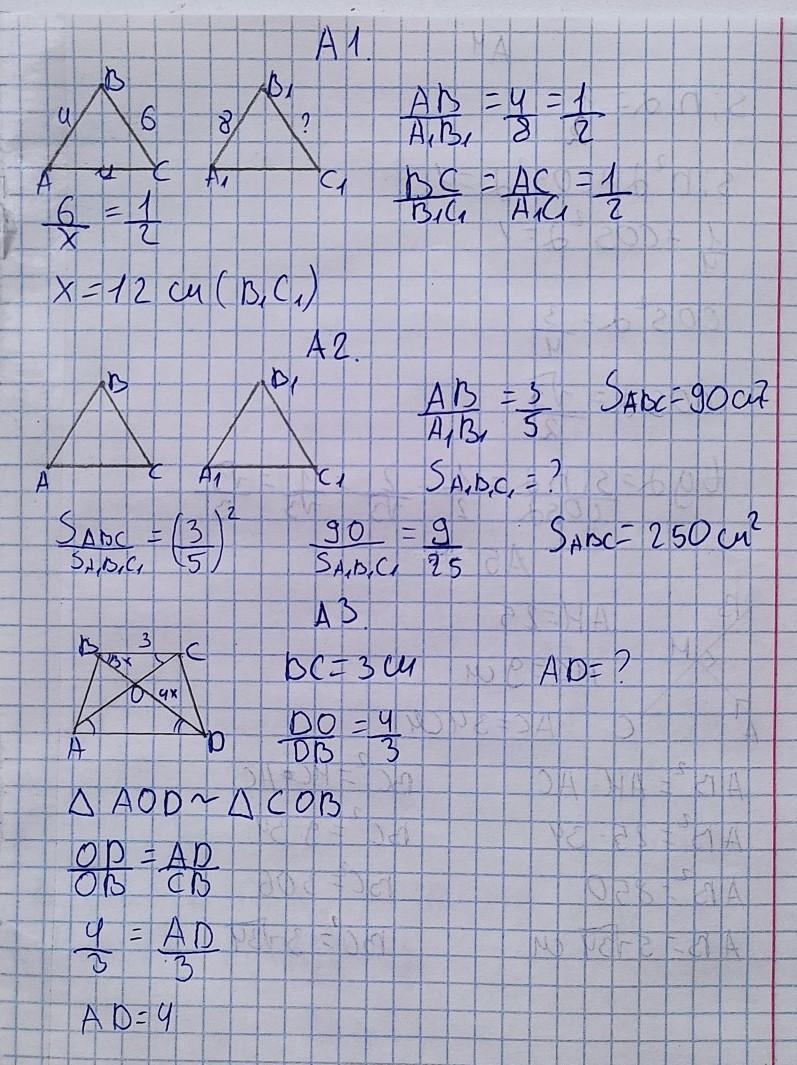 A1.
B B₁
4 6 8 ?
A 4 C A₁ C₁
AB/A₁B₁ = 4/8 = 1/2
BC/B₁C₁ = AC/A₁C₁ = 1/2
6/x = 1/2
x = 12 см (B₁C₁)
A2.
B B₁
A C A₁ C₁
AB/A₁B₁ = 3/5 S_ABC = 90 см²
S_A₁B₁C₁ = ?
S_ABC/S_A₁B₁C₁ = (3/5)² 90/S_A₁B₁C₁ = 9/25 S_ABC = 250 см²
A3.
B 3 C
3x
O 4x
A D
BC = 3 см AD = ?
DO/DB = 4/3
△ AOD ~ △ COB
OD/OB = AD/CB
4/3 = AD/3
AD = 4